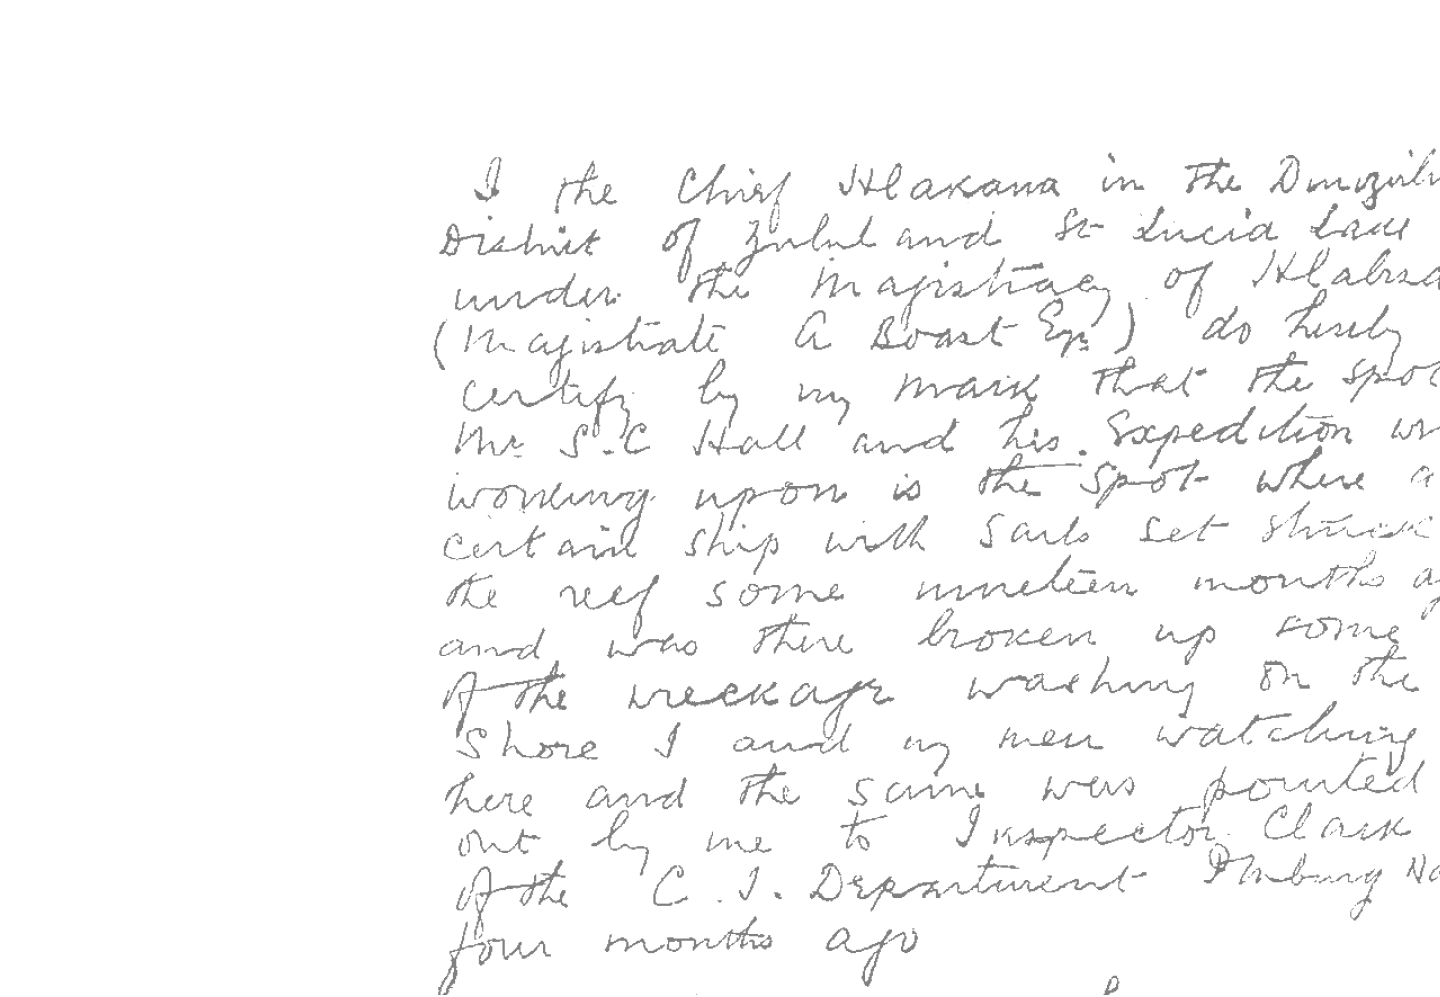 I the Chief Hlakana in the
District of Zululand St Lucia Lake
under the Magistracy of
(Magistrate A Boast Esqr) do hereby
certify by my mark that the spot
Mr S.C Hall and his Expedition
working upon is the spot where a
certain ship with sails set struck
the reef some nineteen months
and was there broken up some
of the wreckage washing on the
shore I and my men watching
here and the same was pointed
out by me to Inspector Clark
of the C.I. Department PMburg
four months ago